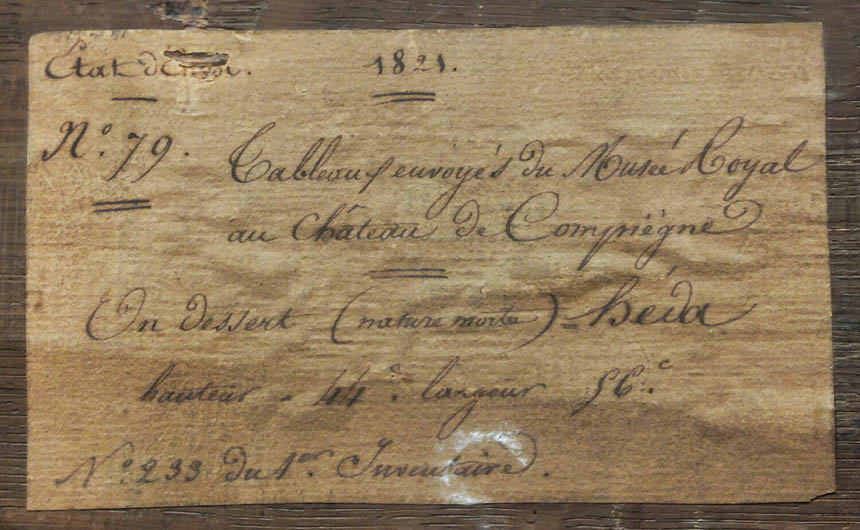 État d'Envoi. 1821.
N.° 79. Tableaux envoyés du Musée Royal
au Château de Compiègne
Un dessert (nature morte) = héda
hauteur - 44.c largeur 56.c
N.° 233 du 1.er Inventaire.